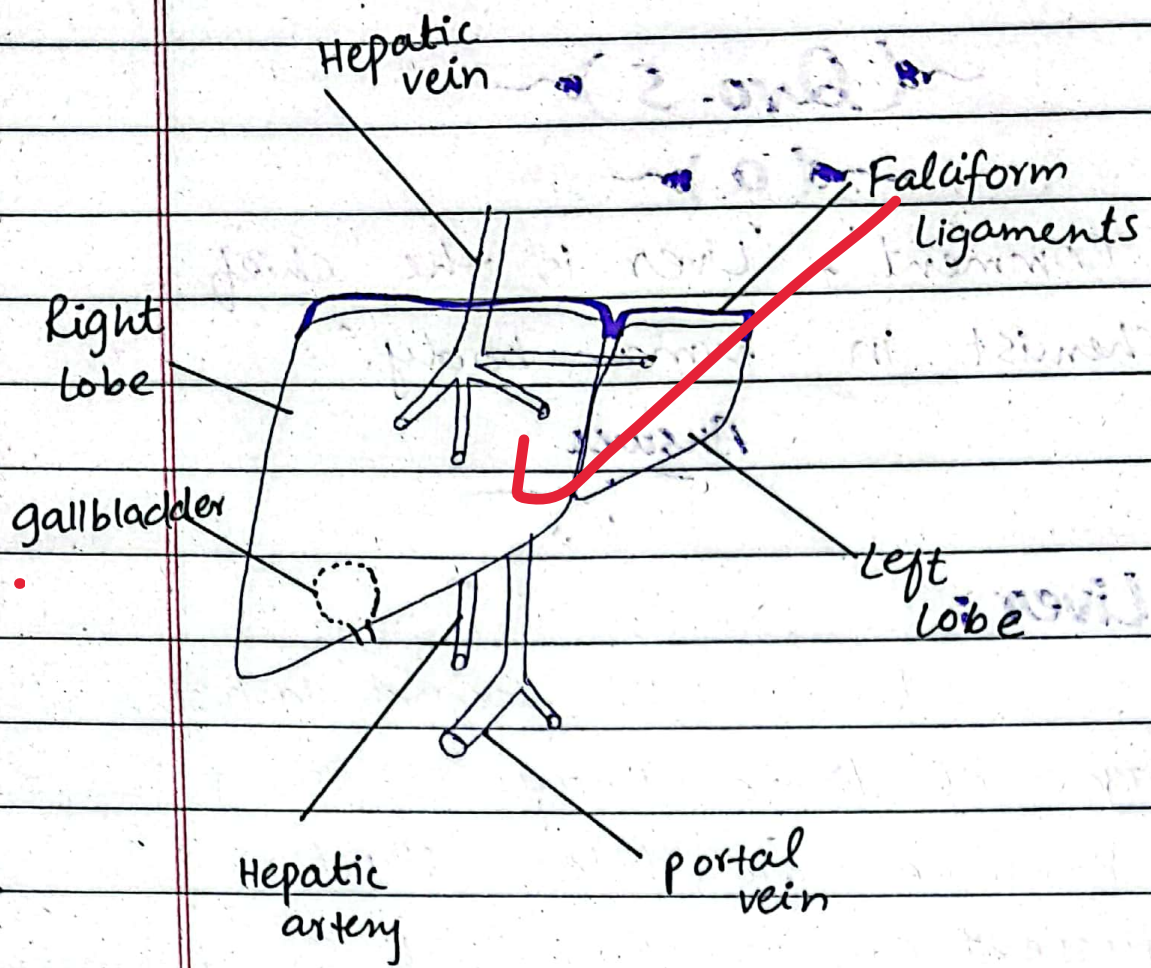 Hepatic
vein
Falciform
Ligaments
Right
lobe
gallbladder
Left
lobe
Hepatic
artery
portal
vein